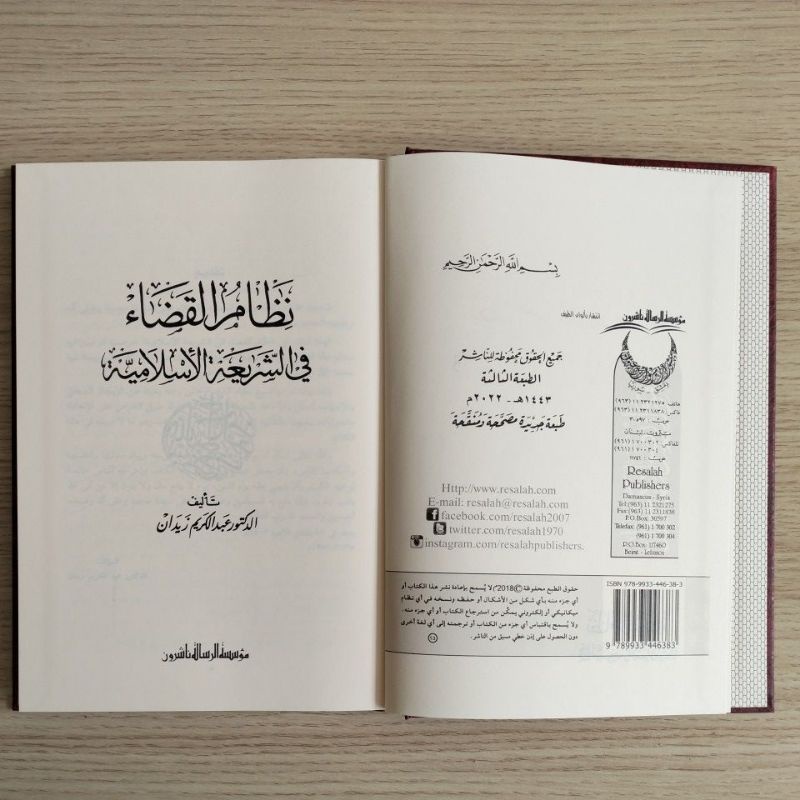 بسم الله الرحمن الرحيم
مؤسسة الرسالة ناشرون
انتشار بألوان الطيف
جميع الحقوق محفوظة للناشر
الطبعة الثالثة
١٤٤٣هـ - ٢٠٢٢م
طبعة جديدة مصححة ومنقحة
دمشق - سوريا
هاتف: ٢٣٢١٢٧٥ ١١ (٩٦٣)
فاكس: ٢٣١١٨٣٨ ١١ (٩٦٣)
ص.ب: ٣٠٥٩٧
بيروت - لبنان
تلفاكس: ٧٠٠٣٠٢ ١ (٩٦١)
٧٠٠٣٠٤ ١ (٩٦١)
Resalah
Publishers
Damascus - Syria
Tel:(963) 11 2321275
Fax:(963) 11 2311838
P.O. Box: 30597
Telefax: (961) 1 700 302
(961) 1 700 304
P.O.Box: 117460
Beirut - Lebanon
Http://www.resalah.com
E-mail: resalah@resalah.com
facebook.com/resalah2007
twitter.com/resalah1970
instagram.com/resalahpublishers.
ISBN 978-9933-446-38-3
9 789933 446383
حقوق الطبع محفوظة ©2018م لا يُسمح بإعادة نشر هذا الكتاب أو
أي جزء منه بأي شكل من الأشكال أو حفظه ونسخه في أي نظام
ميكانيكي أو إلكتروني يمكّن من استرجاع الكتاب أو أي جزء منه.
ولا يُسمح باقتباس أي جزء من الكتاب أو ترجمته إلى أي لغة أخرى
دون الحصول على إذن خطي مسبق من الناشر.
نظام القضاء
في الشريعة الإسلامية
تأليف
الدكتور عبد الكريم زيدان
مؤسسة الرسالة ناشرون